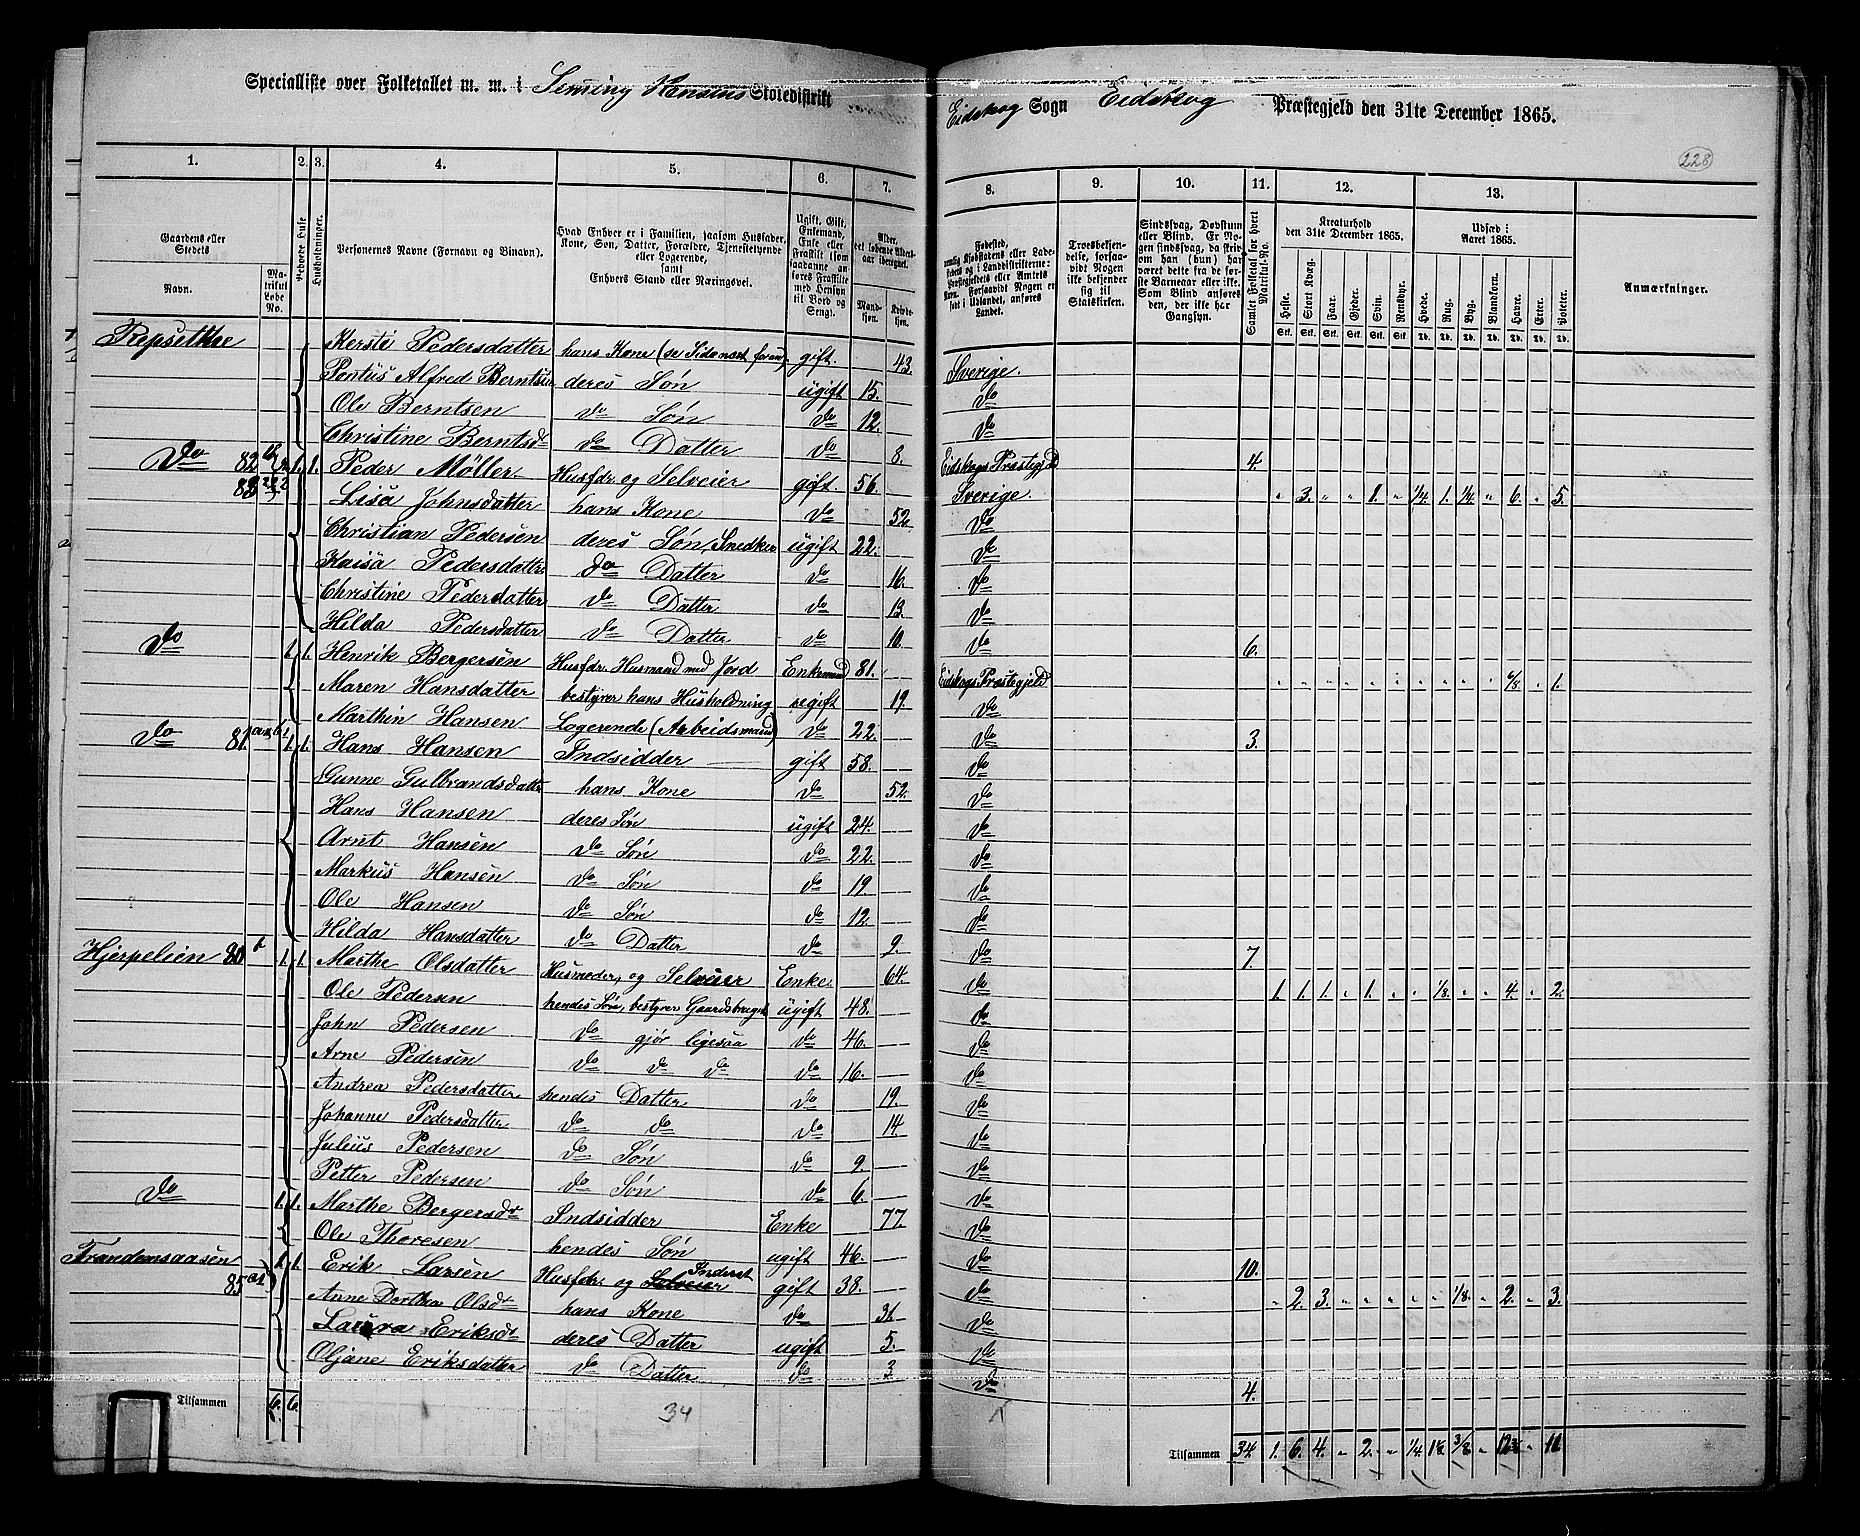 Specialliste over Folketallet m. m. i Simeng Hansens Skoledistrikt
Eidskog Sogn Eidskog Præstegjeld den 31te December 1865.
228
1. 2. 3. 4. 5. 6. 7.
8. 9. 10. 11. 12. 13.
Gaardens eller Stedets
Navn. Matrikul Løbe No.
Beboede Huse
Husholdninger.
Personernes Navne (Fornavn og Binavn).
Hvad Enhver er i Familien, saasom Husfader, Kone, Søn, Datter, Forældre, Tjenestetyende eller Logerende, samt Enhvers Stand eller Næringsvei.
Ugift, Gift, Enkemand, Enke eller Fraskilt (som saadanne anføres Fraskilte med Hensyn til Bord og Seng).
Alder, det løbende Alders-aar iberegnet.
Mandkjøn. Kvindekjøn.
Troesbekjendelse, forsaavidt Nogen ikke bekjender sig til Statskirken.
Sindssvag, Døvstum eller Blind. Er Nogen sindssvag, da skrives om han (hun) har været dette fra de første Barneaar eller ikke. Som Blind anføres den, der ikke har Gangsyn.
Samlet Folketal for hvert Matrikul-No.
Kreaturhold den 31te December 1865.
Udsæd i Aaret 1865.
Heste. Stort Kvæg. Faar. Gjeder. Svin. Rensdyr. Hvede. Rug. Byg. Blandkorn. Havre. Erter. Poteter.
Anmærkninger.
Repsetthe Kersti Pedersdatter hans Kone (se Side næst foran) gift 43. Sverige.
Pontus Alfred Berntsen deres Søn ugift 15. do
Ole Berntsen do Søn do 12. do
Christine Berntsdt do Datter do 8. Eidskogs Præstegjeld 4.
Do 82 1. 1. Peder Møller Husfdr. og Selveier gift 56. Sverige. " 3. " " 1. " 1/4 1. 1/4 " 6. " 5.
83 Lisa Johnsdatter hans Kone do 52 do
Christian Pedersen deres Søn, Snedker ugift 22. do
Kaisa Pedersdatter do Datter do 16. do
Christine Pedersdatter do Datter do 13. do
Hilda Pedersdatter do Datter do 10. do 6.
Do 1. 1. Henrik Bergersen Husfdr. Husmand med Jord Enkemand 81. Eidskogs Præstegjeld 6/8 " 1.
Maren Hansdatter bestyrer hans Husholdning ugift 19. do
Marthin Hansen Logerende (Arbeidsmand) do 22. do 3.
Do 81 1. 1. Hans Hansen Indsidder gift 58. do
Gunne Gulbrandsdatter hans Kone do 52. do
Hans Hansen deres Søn ugift 24. do
Arnt Hansen do Søn do 22. do
Markus Hansen do Søn do 19. do
Ole Hansen do Søn do 12. do
Hilda Hansdatter do Datter do 9. do 7.
Hjerpelien 80 b 1. 1. Marthe Olsdatter Husmoder, og Selveier Enke 64. do 1. 1. 1. " 1. " " 1/8. " " 4. " 2.
Ole Pedersen hendes Søn, bestyrer Gaardsbruget ugift 48. do
John Pedersen do gjør ligesaa do 46. do
Arne Pedersen do do do do 16. do
Andrea Pedersdatter hendes Datter do 19. do
Johanne Pedersdatter do do do 14 do
Julius Pedersen do Søn do 9. do
Petter Pedersen do Søn do 6. do
Do 1. 1. Marthe Bergersdt Indsidder Enke 77. do
Ole Thoresen hendes Søn ugift 46. do 10.
Trandemsaasen 1. 1. Erik Larsen Husfdr. og Selveier Inderst gift 38. do " 2. 3. " " " " " 1/8. " 2. " 3.
85 Anne Dorthea Olsdt hans Kone do 36 do
Laura Eriksdt deres Datter ugift 5. do
Oljane Eriksdatter do Datter do 3. do 4.
Tilsammen 6. 6. 34
Tilsammen 34 1. 6. 4. " 2. " 1/4 1 1/8 3/8 " 12 6/8 " 11